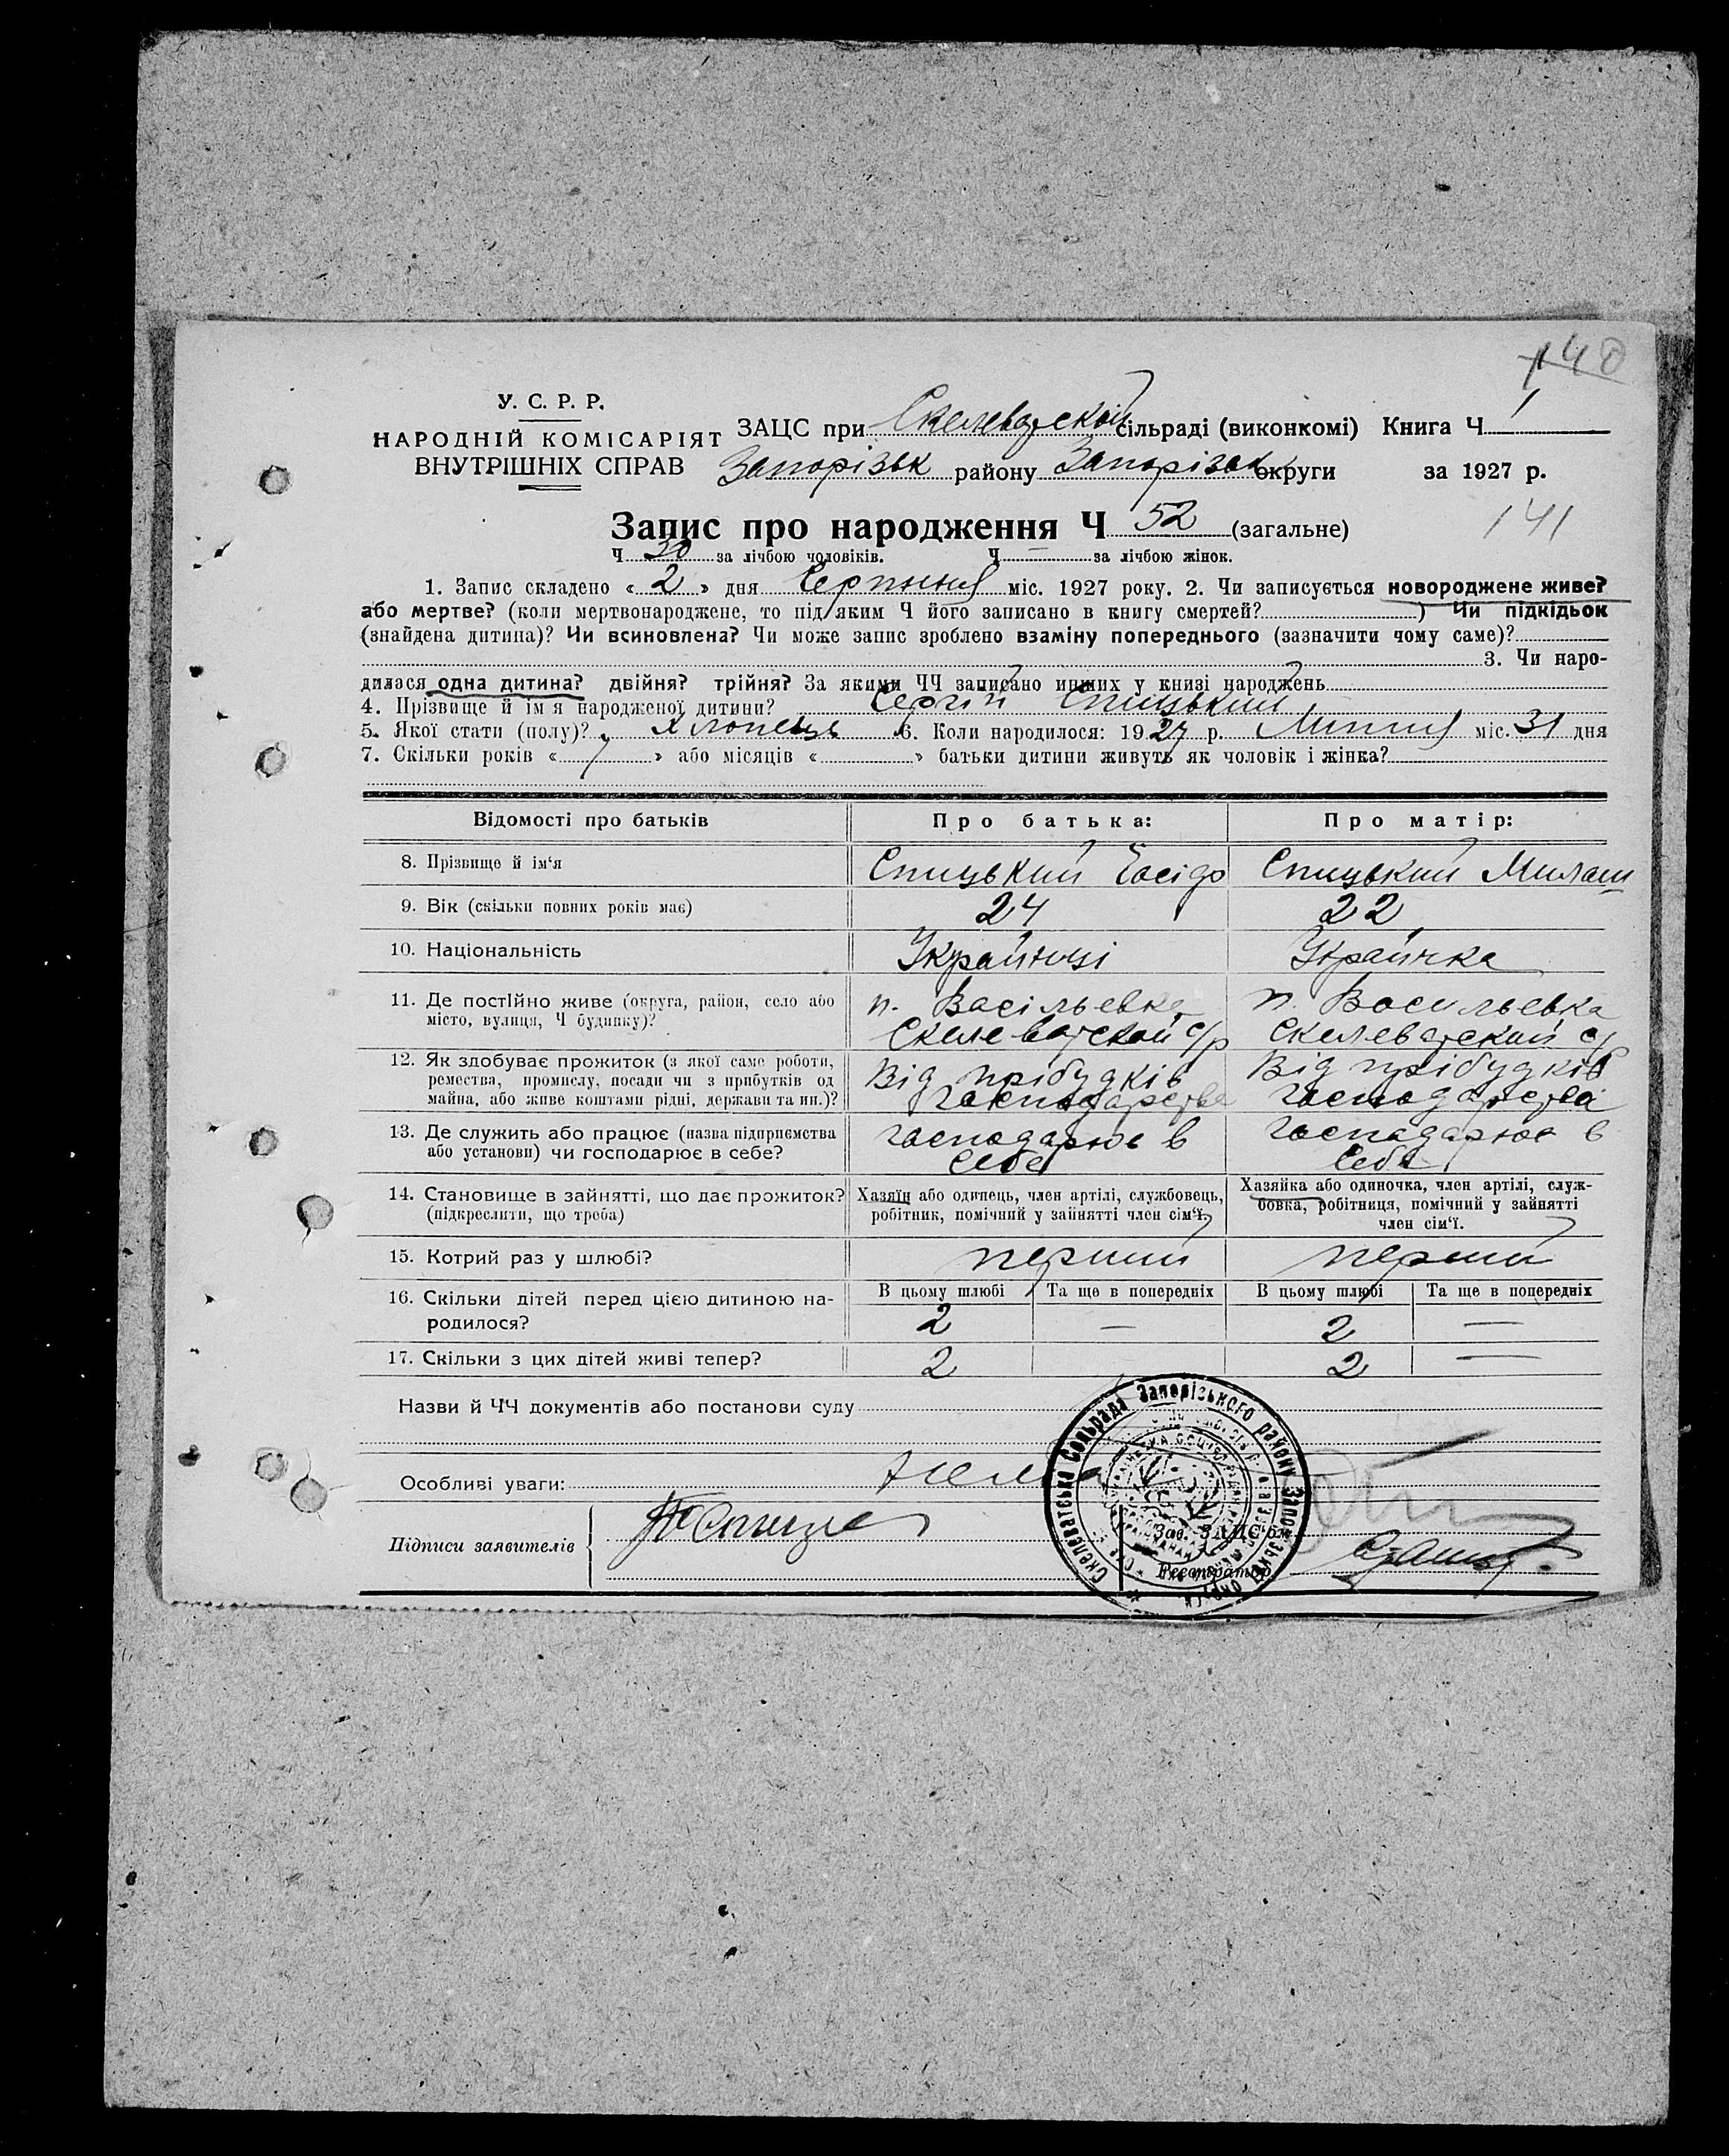 140
У. С. Р. Р.
НАРОДНІЙ КОМІСАРІЯТ
ВНУТРІШНІХ СПРАВ
ЗАЦС при Скелеватской сільраді (виконкомі) Книга Ч 1
Запорізьк району Запорізьк округи за 1927 р.
Запис про народження Ч 52 (загальне)
141
Ч 30 за лічбою чоловіків. Ч — за лічбою жінок.
1. Запис складено « 2 » дня Серпння міс. 1927 року. 2. Чи записується новороджене живе?
або мертве? (коли мертвонароджене, то під яким Ч його записано в книгу смертей? ) Чи підкідьок
(знайдена дитина)? Чи всиновлена? Чи може запис зроблено взаміну попереднього (зазначити чому саме)?
3. Чи наро-
дилася одна дитина? двійня? трійня? За якими ЧЧ записано инших у книзі народжень
4. Прізвище й ім'я народженої дитини? Сергій Спицький
5. Якої стати (полу)? хлопець 6. Коли народилося: 1927 р. Липня міс. 31 дня
7. Скільки років « » або місяців « » батьки дитини живуть як чоловік і жінка?
Відомості про батьків Про батька: Про матір:
8. Прізвище й ім'я Спицький Спицький
9. Вік (скільки повних років має) 24 22
10. Національність Українці Українка
11. Де постійно живе (округа, район, село або
місто, вулиця, Ч будинку)?
п. Васільевка
Скелеватской с/р
п. Васильевка
Скелеватский с/р
12. Як здобуває прожиток (з якої саме роботи,
ремества, промислу, посади чи з прибутків од
майна, або живе коштами рідні, держави та ин.)?
Від прібудків
господарства
Від прібудків
господарства
13. Де служить або працює (назва підприємства
або установи) чи господарює в себе?
господарює в
себе
господарює в
себе
14. Становище в зайнятті, що дає прожиток?
(підкреслити, що треба)
Хазяїн або одинець, член артілі, службовець,
робітник, помічний у зайнятті член сім'ї.
Хазяйка або одиночка, член артілі, служ-
бовка, робітниця, помічний у зайнятті
член сім'ї.
15. Котрий раз у шлюбі? перший перший
В цьому шлюбі Та ще в попередніх В цьому шлюбі Та ще в попередніх
16. Скільки дітей перед цією дитиною на-
родилося?
2 — 2 —
17. Скільки з цих дітей живі тепер? 2 2 —
Назви й ЧЧ документів або постанови суду
Особливі уваги: нема
Підписи заявителів
Зав. ЗАЦС'ом
Реєстратор
Скелеватська Сільрада Запорізького району Запорізької округи